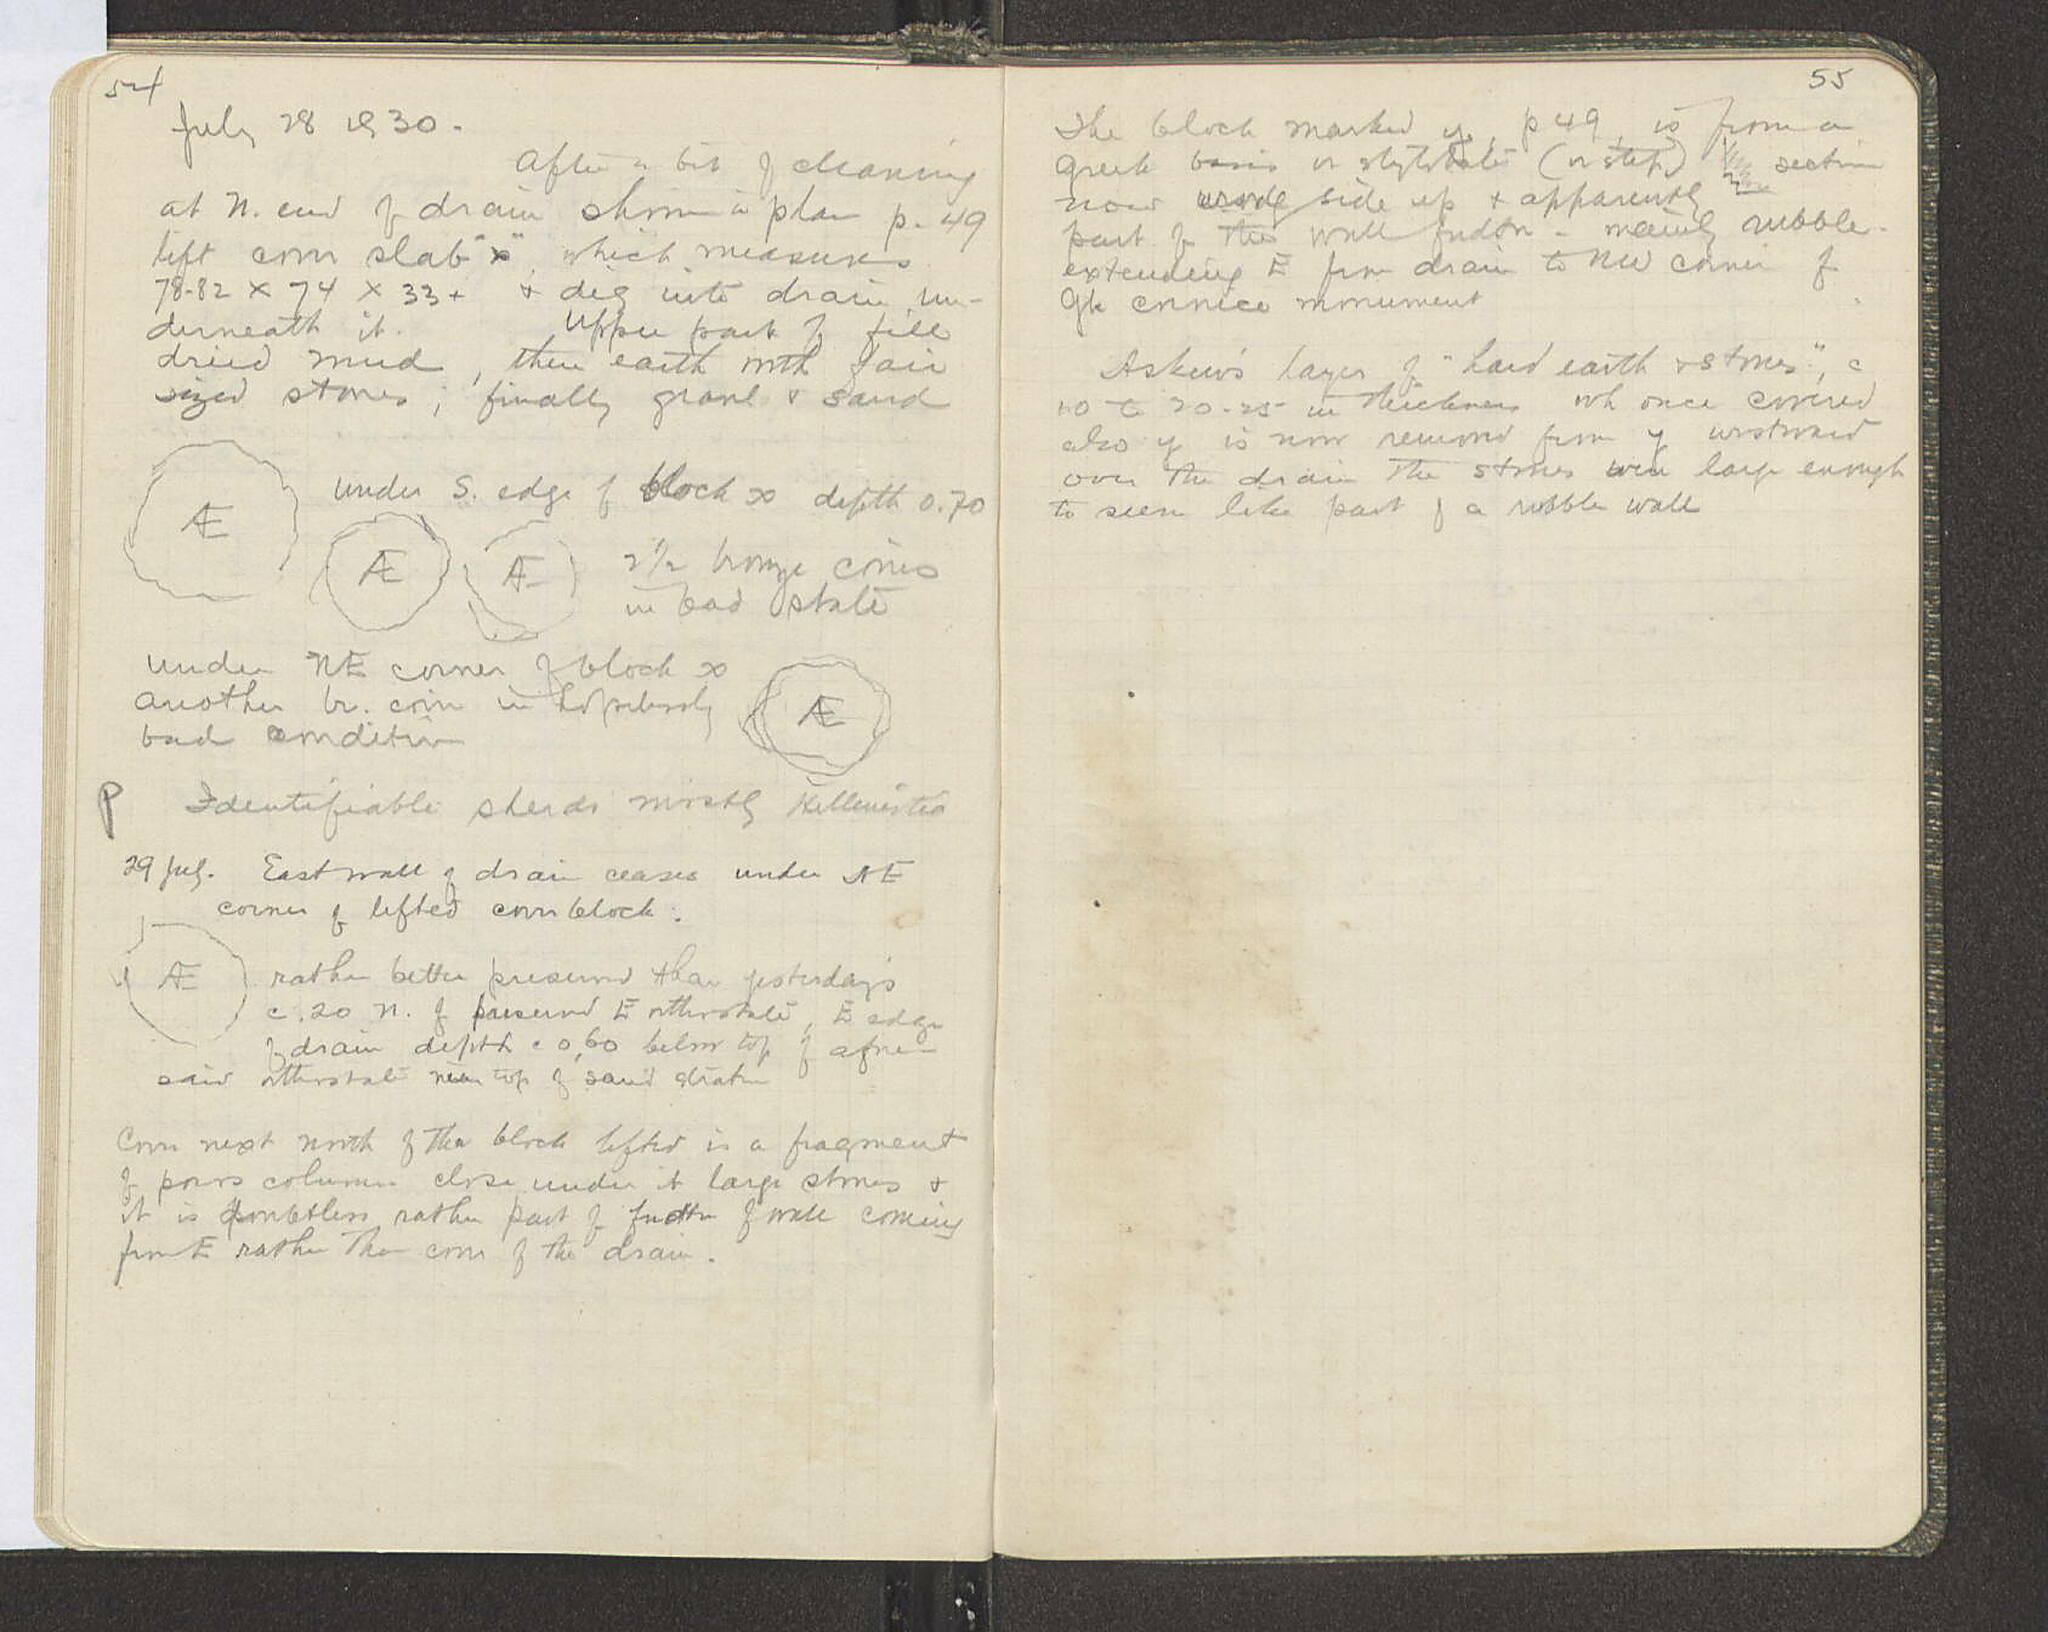 54
July 28 1930.
After a bit of cleaning
at N. end of drain shown in plan p. 49
lift cover slab "x", which measures
78-82 x 74 x 33+ + dig into drain un-
derneath it. Upper part of fill
dried mud, then earth with fair
sized stones; finally gravel + sand
Æ
under S. edge of block x depth 0.70
Æ Æ 2 1/2 bronze coins
in bad state
under NE corner of block x
another br. coin in hopelessly
bad condition
Æ
P Identifiable sherds mostly Hellenistic
29 July. East wall of drain ceases under NE
corner of lifted cover block.
Æ rather better preserved than yesterday's
c. 20 N. of preserved E orthostate, E edge
of drain depth c 0,60 below top of afore-
said orthostate near top of sand stratum
Cover next north of the block lifted is a fragment
of poros column close under it large stones +
it is doubtless rather part of fndtn of wall coming
from E rather than cover of the drain.
55
The block marked y, p 49, is from a
Greek basis or stylobate (or step) section
now wrong side up + apparently
part of the wall fndtn - mainly rubble -
extending E from drain to NW corner of
Gk cornice monument
Askew's layer of "hard earth + stones", c
10 to 20-25 in thickness wh once covered
also y is now removed from y westward
over the drain the stones were large enough
to seem like part of a rubble wall